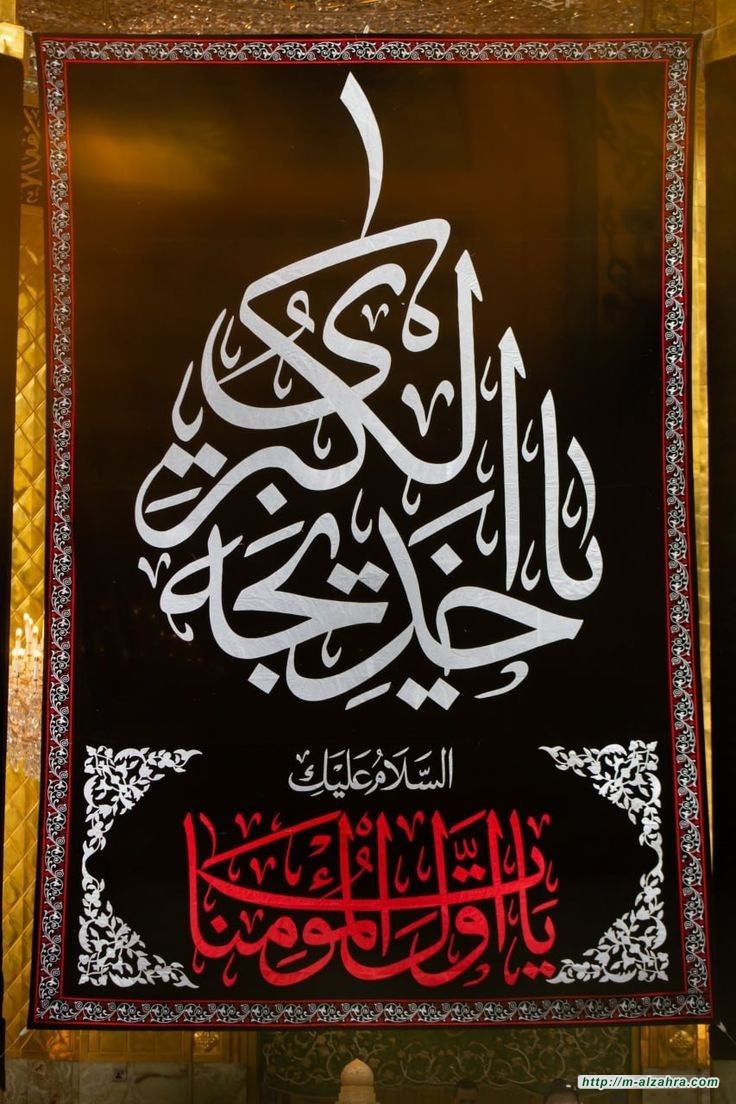 يا خَدِيجَة الكُبرىٰ
السَّلَامُ عَلَيْكِ
يَا أَوَّلَ المُؤْمِنَات
http://m-alzahra.com